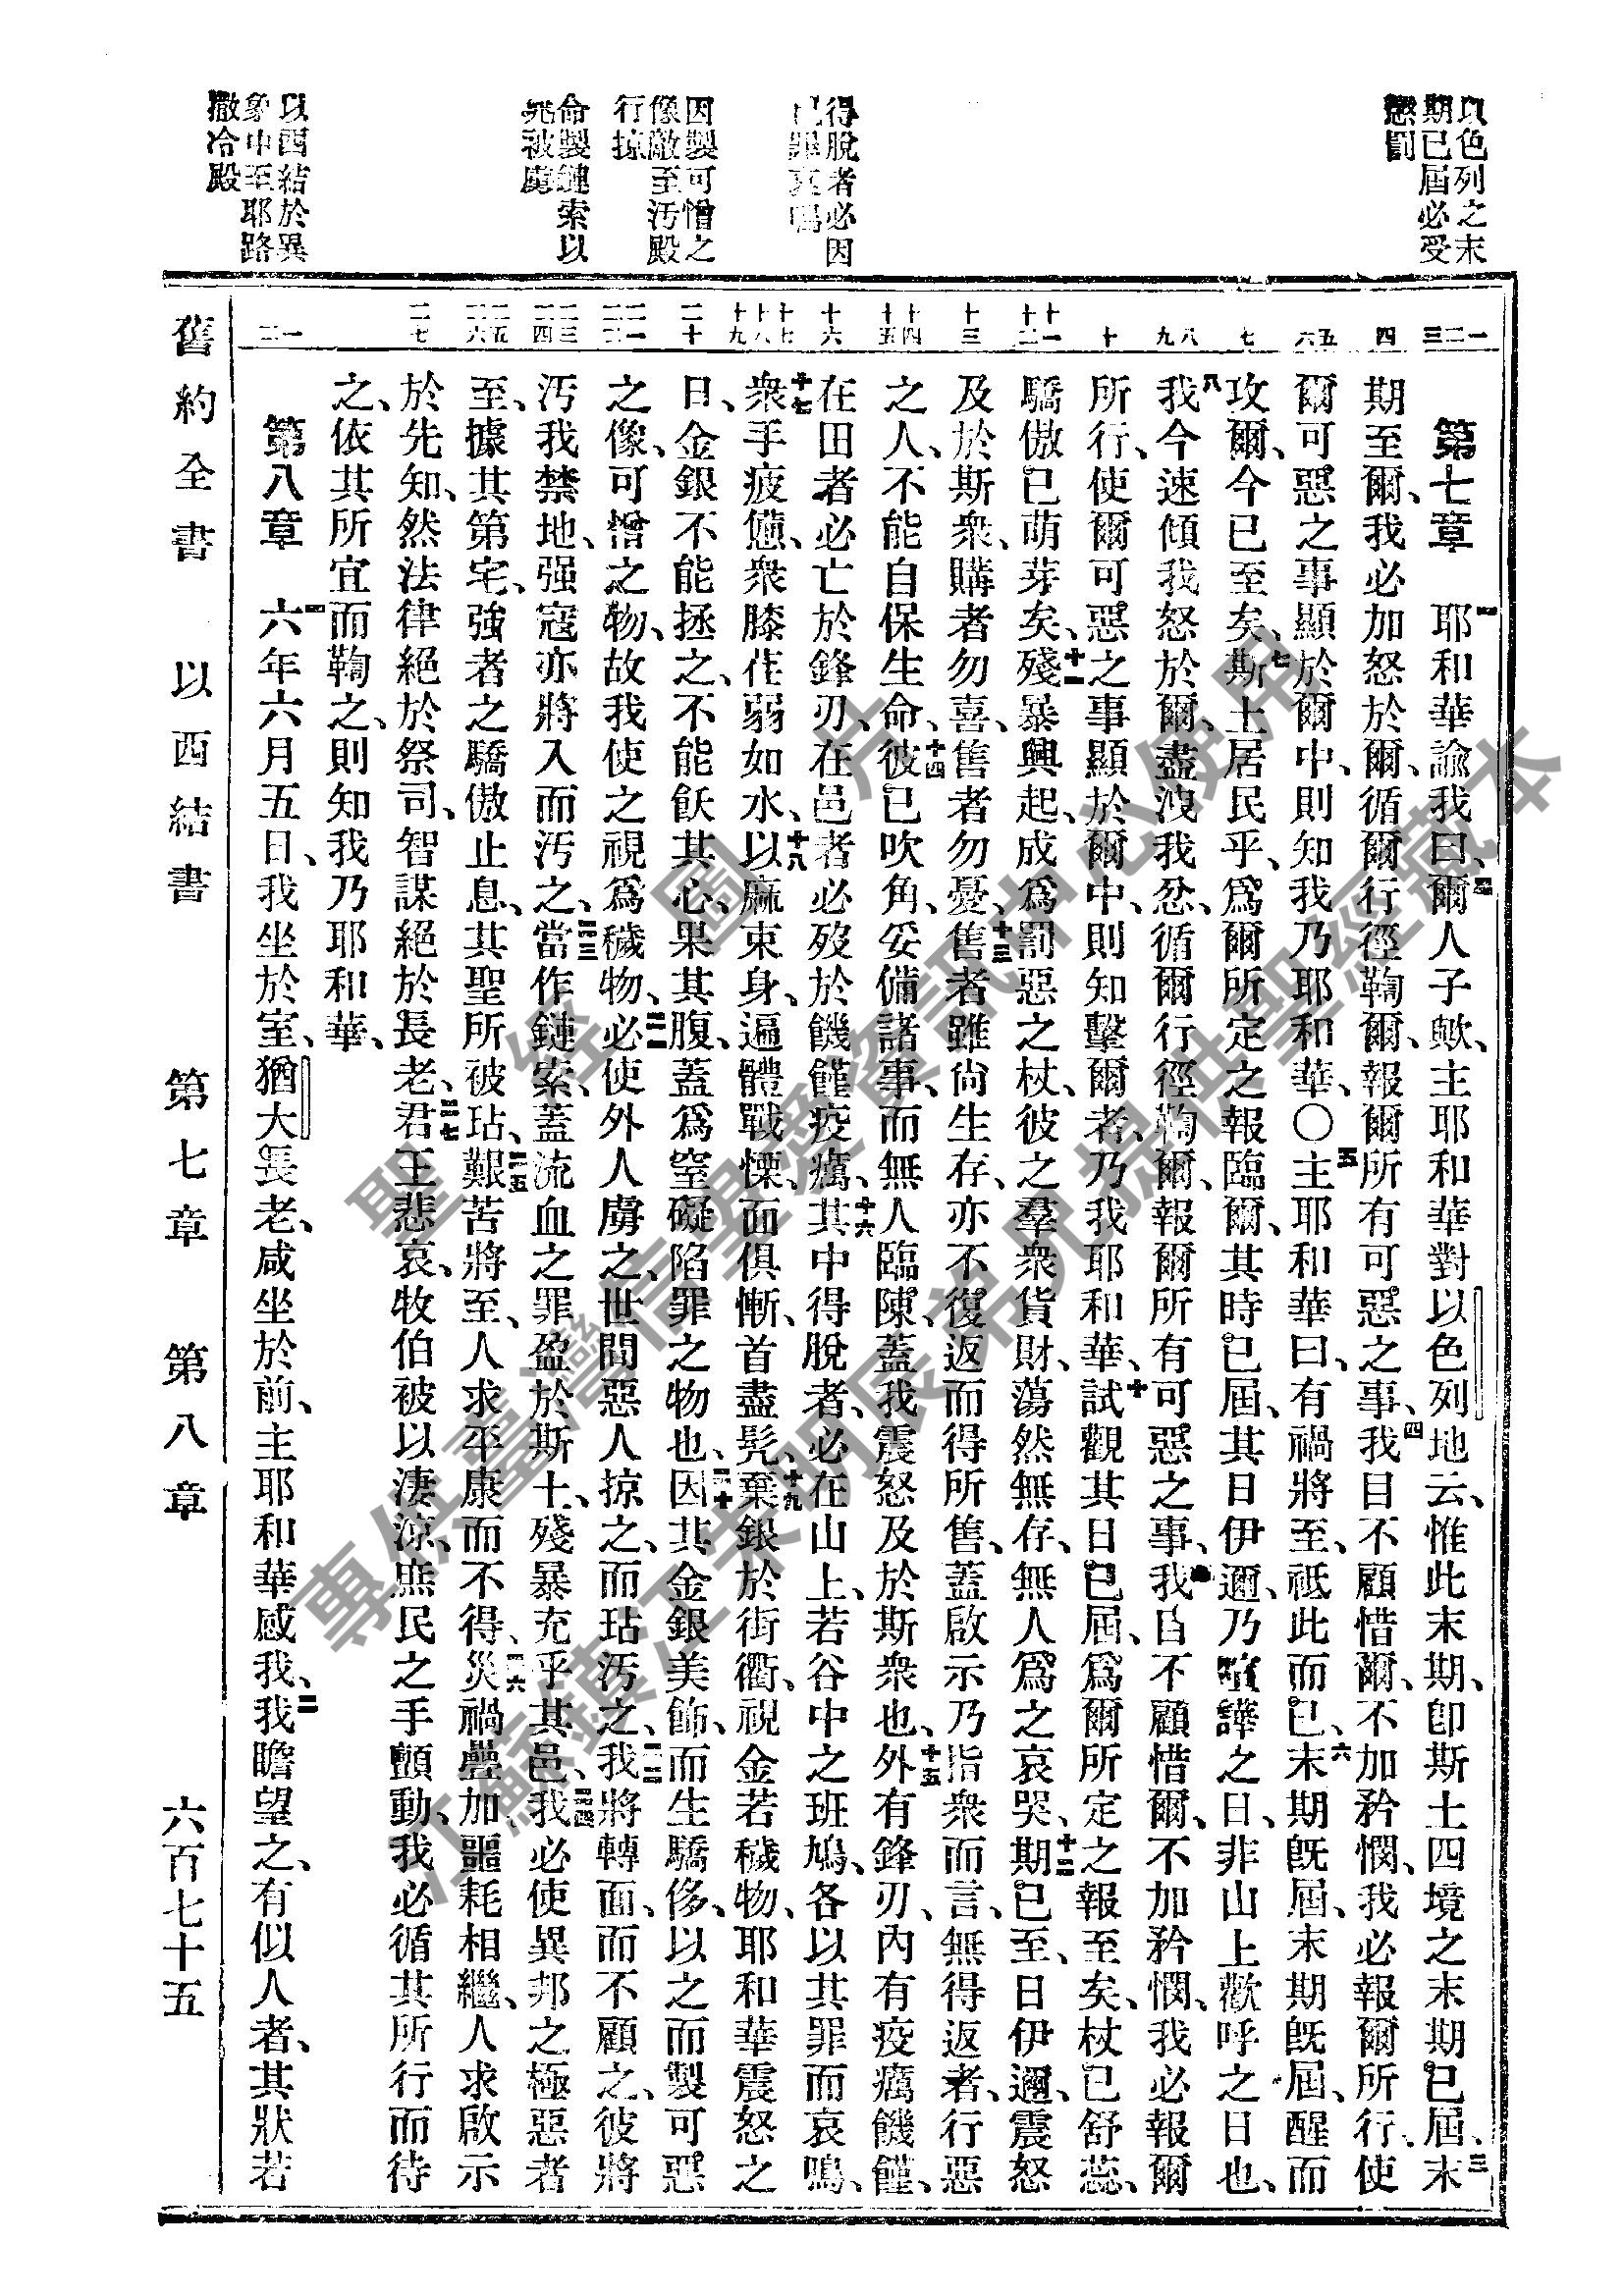 以色列之末
期已屆必受
懲罰
得脫者必因
己罪哀鳴
因製可憎之
像敵至汚殿
行掠
命製鏈索以
兆被虜
以西結於異
象中至耶路
撒冷殿
一 二 三 四 五 六 七 八 九 十 十一 十二 十三 十四 十五 十六 十七 十八 十九 二十 二一 二二 二三 二四 二五 二六 二七 一 二
第七章 一耶和華諭我曰、二爾人子歟、主耶和華對以色列地云、惟此末期、卽斯土四境之末期已屆、三末
期至爾、我必加怒於爾、循爾行徑鞫爾、報爾所有可惡之事、四我目不顧惜爾、不加矜憫、我必報爾所行、使
爾可惡之事顯於爾中、則知我乃耶和華、〇五主耶和華曰、有禍將至、祇此而已、六末期旣屆、末期旣屆、醒而
攻爾、今已至矣、七斯土居民乎、爲爾所定之報臨爾、其時已屆、其日伊邇、乃喧譁之日、非山上歡呼之日也、
八我今速傾我怒於爾、盡洩我忿、循爾行徑鞫爾、報爾所有可惡之事、九我目不顧惜爾、不加矜憫、我必報爾
所行、使爾可惡之事顯於爾中、則知擊爾者、乃我耶和華、十試觀其日已屆、爲爾所定之報至矣、杖已舒蕊、
驕傲已萌芽矣、十一殘暴興起、成爲罰惡之杖、彼之羣衆貨財、蕩然無存、無人爲之哀哭、十二期已至、日伊邇、震怒
及於斯衆、購者勿喜、售者勿憂、十三售者雖尙生存、亦不復返而得所售、蓋啟示乃指衆而言、無得返者、行惡
之人、不能自保生命、十四彼已吹角、妥備諸事、而無人臨陳、蓋我震怒及於斯衆也、十五外有鋒刃、內有疫癘饑饉、
在田者必亡於鋒刃、在邑者必歿於饑饉疫癘、十六其中得脫者、必在山上、若谷中之班鳩、各以其罪而哀鳴、
十七衆手疲憊、衆膝荏弱如水、十八以麻束身、遍體戰慄、面俱慚、首盡髡、十九棄銀於街衢、視金若穢物、耶和華震怒之
日、金銀不能拯之、不能飫其心、果其腹、蓋爲窒礙陷罪之物也、二十因其金銀美飾、而生驕侈、以之而製可惡
之像、可憎之物、故我使之視爲穢物、二一必使外人虜之、世間惡人掠之、而玷汚之、二二我將轉面、而不顧之、彼將
汚我禁地、强寇亦將入而汚之、二三當作鏈索、蓋流血之罪盈於斯土、殘暴充乎其邑、二四我必使異邦之極惡者
至、據其第宅、強者之驕傲止息、其聖所被玷、二五艱苦將至、人求平康而不得、二六災禍疊加、噩耗相繼、人求啟示
於先知、然法律絕於祭司、智謀絕於長老、二七君王悲哀、牧伯被以淒涼、庶民之手顫動、我必循其所行而待
之、依其所宜而鞫之、則知我乃耶和華、
第八章 一六年六月五日、我坐於室、猶大長老、咸坐於前、主耶和華感我、二我瞻望之、有似人者、其狀若
舊約全書 以西結書 第七章 第八章 六百七十五
聖經圖片
專供臺灣信望愛資訊中心使用
江蘇鎮江朱明辰弟兄提供聖經藏本